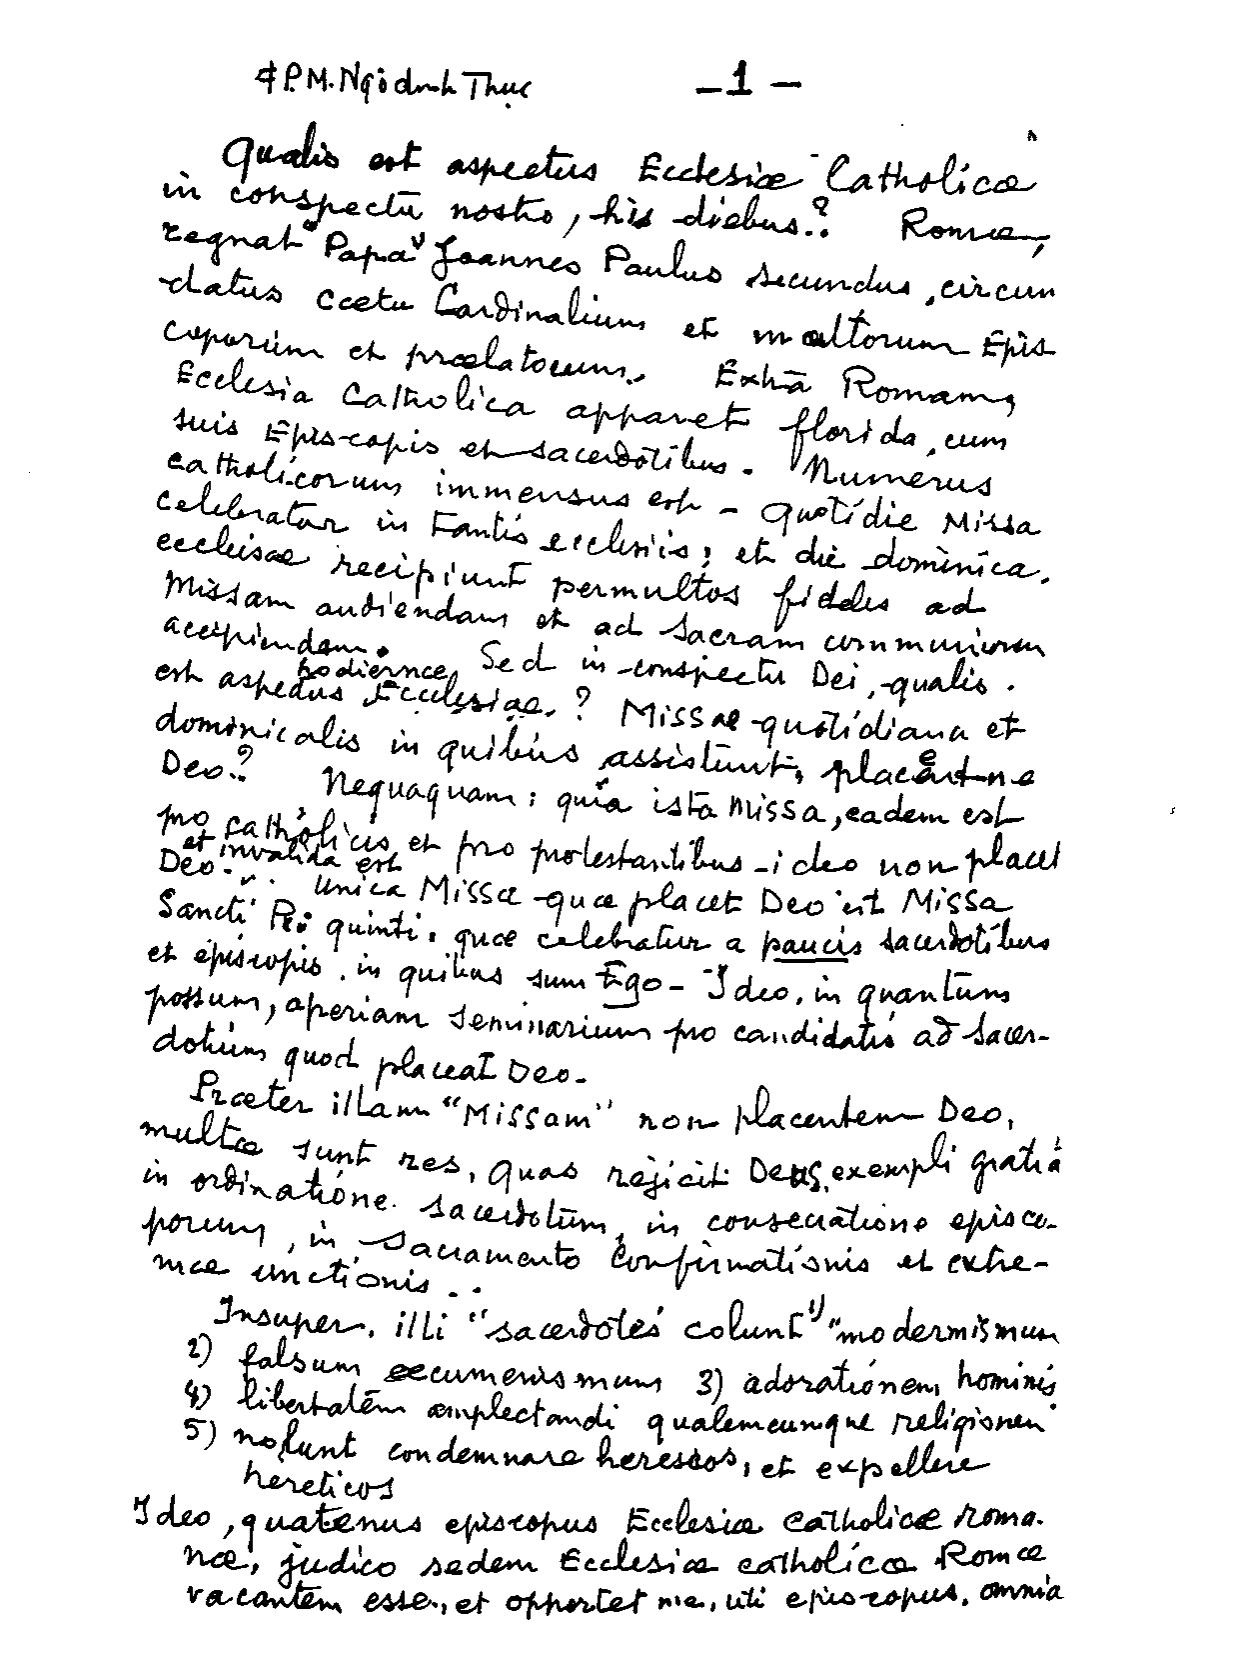 ‡ P.M. Ngôdinh Thục — 1 —
Qualis est aspectus Ecclesiæ Catholicæ
in conspectu nostro, his diebus? Romæ,
regnat "Papa" Joannes Paulus secundus, circun
-datus cœtu Cardinalium et multorum Epis-
coporum et prælatorum. Extrā Romam,
Ecclesia Catholica apparet florida, cum
suis Episcopis et sacerdotibus. Numerus
catholicorum immensus est - Quotidie Missa
celebratur in tantis ecclesiis; et die dominica,
ecclesiae recipiunt permultos fideles ad
Missam audiendam et ad sacram communionem
accipiendam. Sed in conspectu Dei, qualis
est aspectus hodiernæ Ecclesiae? Missae quotidiana et
dominicalis in quibus assistunt, placent-ne
Deo? Nequaquam: quia ista Missa, eadem est
pro catholicis et pro protestantibus - ideo non placet
Deo et invalida est. Unica Missa quæ placet Deo est Missa
Sancti Pii quinti, quæ celebratur a paucis sacerdotibus
et episcopis, in quibus sum Ego - Ideo, in quantum
possum, aperiam seminarium pro candidatis ad sacer-
dotium quod placeat Deo.
Præter illam "Missam" non placentem Deo,
multæ sunt res, quas rejicit Deus, exempli gratiā
in ordinatione sacerdotum, in consecratione episco-
porum, in sacramento Confirmationis et extre-
mæ unctionis..
Insuper, illi "sacerdotes" colunt 1) "modernismum
2) falsum oecumenismum 3) adorationem hominis
4) libertatem amplectandi qualemcumque religionem
5) nolunt condemnare heresos, et expellere
hereticos
Ideo, quatenus episcopus Ecclesiæ catholicæ roma-
næ, judico sedem Ecclesiæ catholicæ Romæ
vacantem esse, et opportet me, uti episcopus, omnia